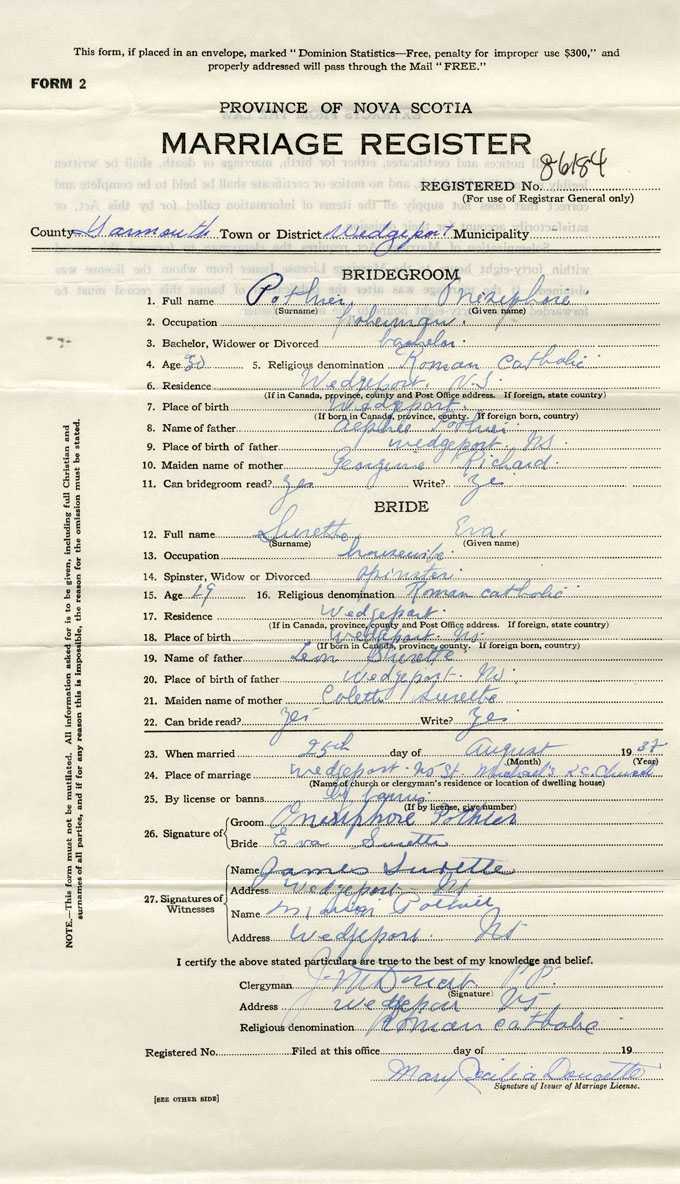 This form, if placed in an envelope, marked "Dominion Statistics—Free, penalty for improper use $300," and
properly addressed will pass through the Mail "FREE."
FORM 2
PROVINCE OF NOVA SCOTIA
MARRIAGE REGISTER
REGISTERED No. 86184
(For use of Registrar General only)
County Yarmouth Town or District Wedgeport Municipality
BRIDEGROOM
1. Full name Pothier, Onesiphore
(Surname) (Given name)
2. Occupation fisherman.
3. Bachelor, Widower or Divorced bachelor.
4. Age 30 5. Religious denomination Roman Catholic
6. Residence Wedgeport, N.S.
(If in Canada, province, county and Post Office address. If foreign, state country)
7. Place of birth Wedgeport.
(If born in Canada, province, county. If foreign born, country)
8. Name of father Pothier
9. Place of birth of father Wedgeport NS.
10. Maiden name of mother Richard.
11. Can bridegroom read? yes Write? yes
BRIDE
12. Full name Surette, Eva,
(Surname) (Given name)
13. Occupation housewife.
14. Spinster, Widow or Divorced spinster.
15. Age 29 16. Religious denomination Roman catholic
17. Residence Wedgeport.
(If in Canada, province, county and Post Office address. If foreign, state country)
18. Place of birth Wedgeport. NS.
(If born in Canada, province, county. If foreign born, country)
19. Name of father Leon Surette
20. Place of birth of father Wedgeport. NS.
21. Maiden name of mother Colette Surette
22. Can bride read? yes Write? yes
23. When married 25th day of August 1937
(Month) (Year)
24. Place of marriage Wedgeport. NS St Michael's R.C. Church
(Name of church or clergyman's residence or location of dwelling house)
25. By license or banns by banns
(If by license, give number)
26. Signature of
Groom Onesiphore Pothier
Bride Eva Surette
27. Signatures of Witnesses
Name James Surette
Address Wedgeport NS
Name Pothier
Address Wedgeport. NS
I certify the above stated particulars are true to the best of my knowledge and belief.
Clergyman P.P.
(Signature)
Address Wedgeport NS
Religious denomination Roman catholic
Registered No. Filed at this office day of 19
Mary Cecilia Doucette
Signature of Issuer of Marriage License.
[SEE OTHER SIDE]
NOTE.—This form must not be mutilated. All information asked for is to be given, including full Christian and
surnames of all parties, and if for any reason this is impossible, the reason for the omission must be stated.